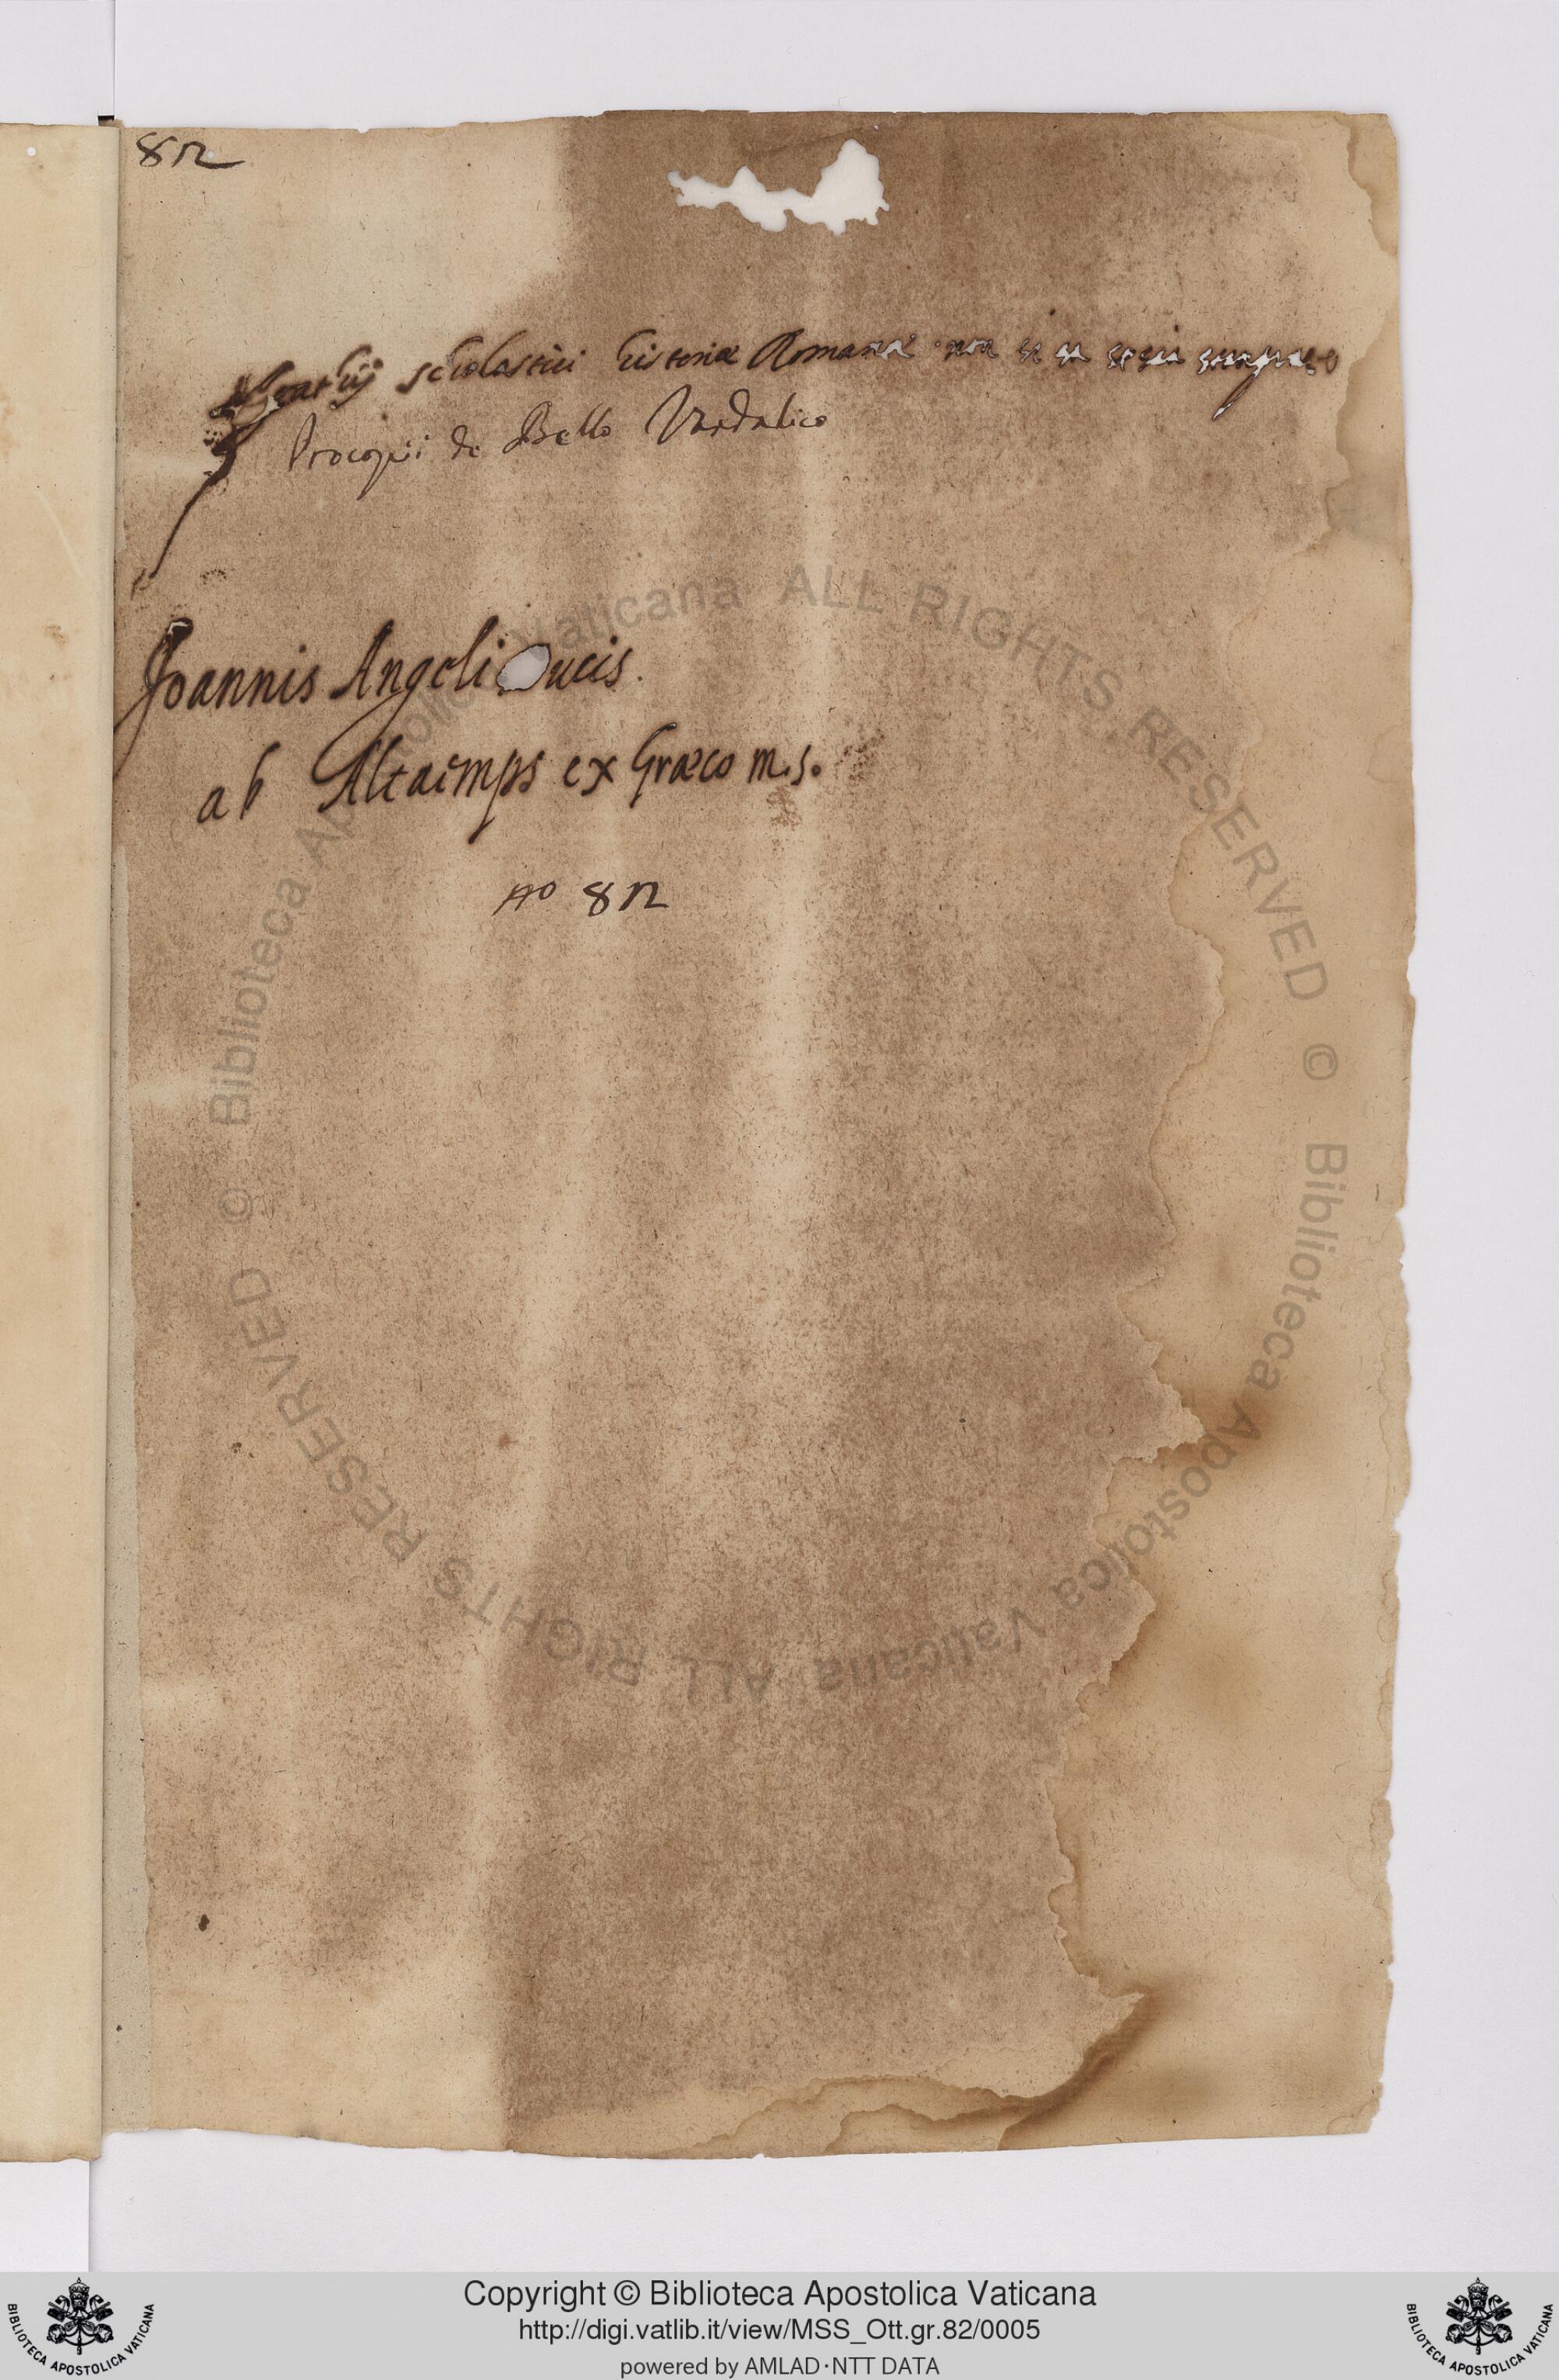 82
Agathij scholastici historiae Romanae non si sa
Procopii de Bello Vandalico
Joannis Angeli Ducis.
ab Altaemps ex Graeco m.s.
no 82
© Biblioteca Apostolica Vaticana ALL RIGHTS RESERVED © Biblioteca Apostolica Vaticana ALL RIGHTS RESERVED
Copyright © Biblioteca Apostolica Vaticana
http://digi.vatlib.it/view/MSS_Ott.gr.82/0005
powered by AMLAD·NTT DATA
BIBLIOTECA APOSTOLICA VATICANA
BIBLIOTECA APOSTOLICA VATICANA